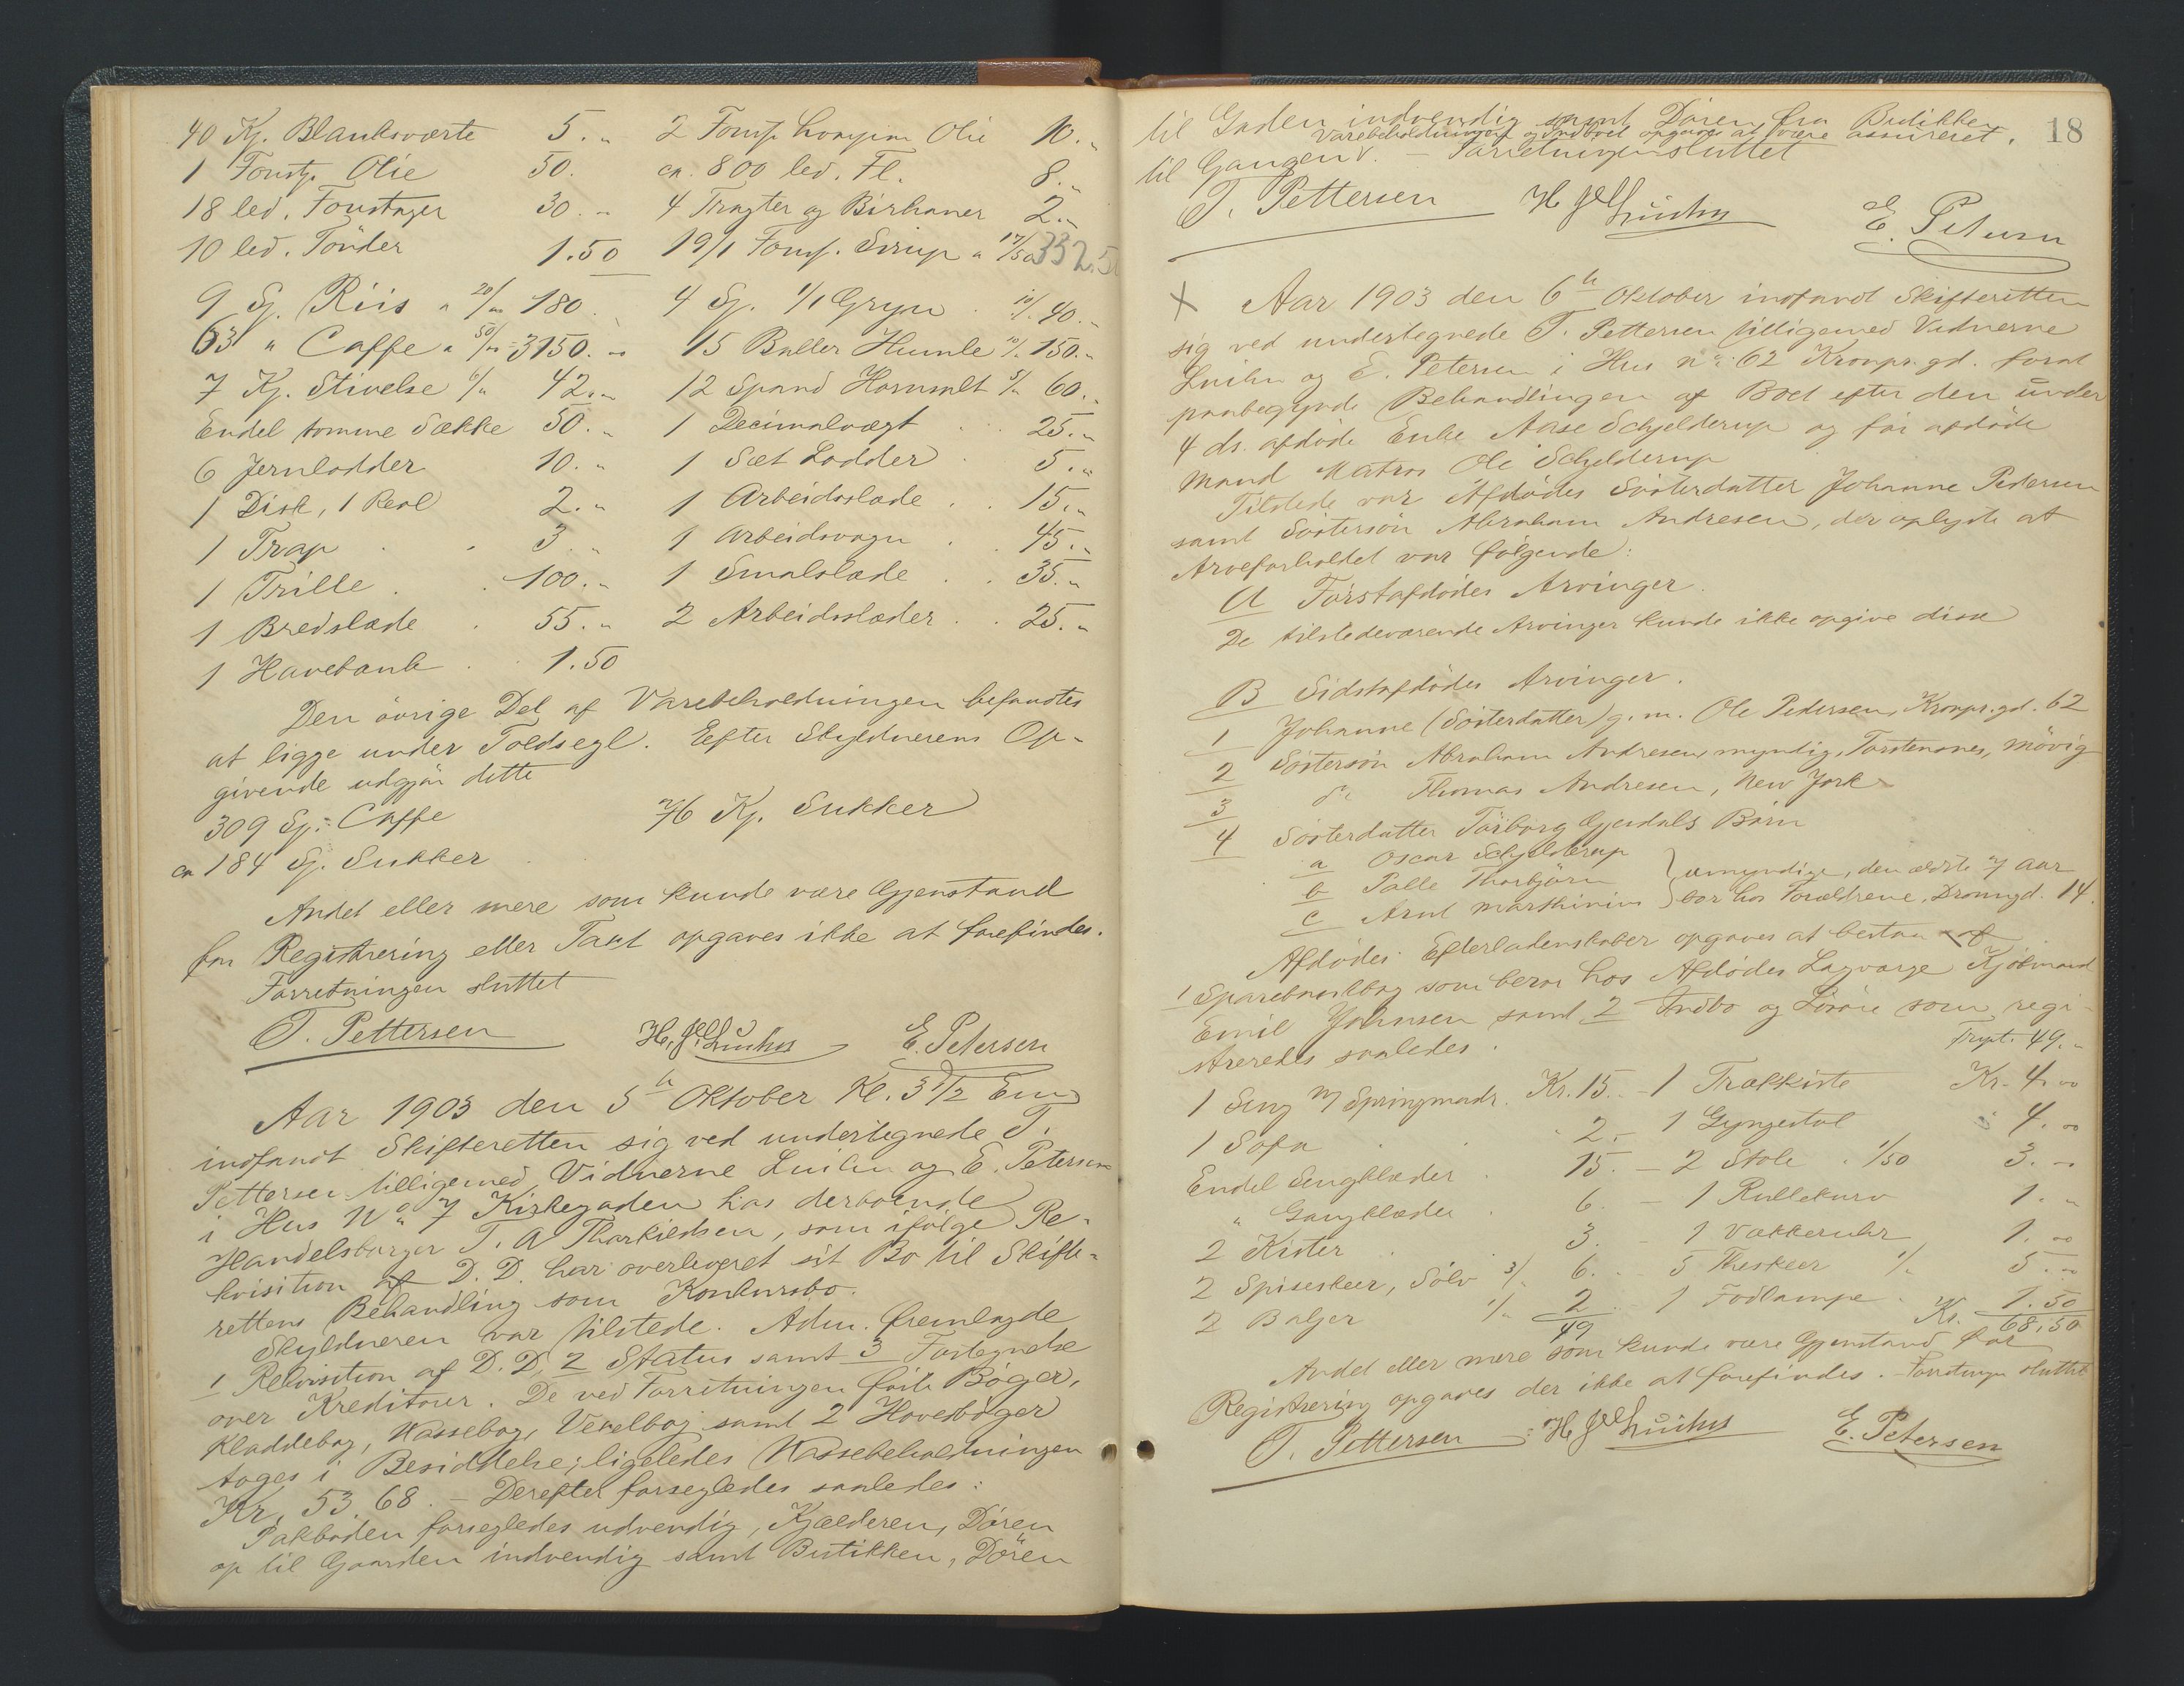 40 Kg. Blanksværte 5. „ 2 Foust. Olie 10. „
1 Foustg. Olie 50. ca. 800 led. Fl. 8. „
18 led. Foustager 30. „ 4 Tragter og Birhaner 2. „
10 led. Tönder 1.50 19/1 Foust. Sirup a 17/50 332.5
9 Sj. Riis a 20/„ 180. 4 Sj. 1/1 Gryn 10/„ 40. „
63 „ Caffe a 50/„ = 3150. „ 15 Baller Humle 10/„ 150. „
7 Kg. Stivelse 6/„ 42. „ 12 Spand 5/„ 60. „
Endel tomme Sække 50. „ 1 Decimalvægt 25. „
6 Jernlodder 10. „ 1 Sæt Lodder 5. „
1 Disk, 1 Reol 2. „ 1 Arbeidsslæde 15. „
1 Trap 3 „ 1 Arbeidsvogn 45. „
1 Trille 100. „ 1 Smalslæde 35. „
1 Bredslæde 55. „ 2 Arbeidsslæder 25. „
1 Havebænk 1.50
Den øvrige Del af Varebeholdningen befandtes
at ligge under Toldsegl. Efter Skyldnerens Op-
givende udgjør dette
309 Sj. Caffe 76 Kg. Sukker
ca 184 Sj. Sukker
Andet eller mere som kunde være Gjenstand
for Registrering eller Taxt opgaves ikke at forefindes.
Forretningen sluttet
T. Pettersen E. Petersen
Aar 1903 den 5te Oktober Kl. 3 1/2 Em
indfandt Skifteretten sig ved undertegnede T.
Pettersen tilligemed Vidnerne og E. Petersen
i Hus No 7 Kirkegaden hos derboende
Handelsborger T. A. Tharkildsen, som ifølge Re-
kvisition af D. D. har overleveret sit Bo til Skifte-
rettens Behandling som Konkursbo.
Skyldneren var tilstede. Adm. fremlagde
1 Rekvisition af D. D. 2 Status samt 3 Fortegnelse
over Kreditorer. De ved Forretningen Bøger,
Kladdebog, Kassebog, Vexelbog samt 2 Hovedbøger
toges i Besiddelse; ligeledes Kassebeholdningen
Kr. 53.68. – Derefter forsegledes saaledes:
Pakboden forsegledes udvendig, Kjælderen, Døren
op til Gaarden indvendig samt Butikken, Døren
18
til Gaden indvendig samt Døren fra Butikken
Varebeholdningen og Indboet opgaves at være assureret.
til Gangen v. – Forretningen sluttet
T. Pettersen E. Petersen
X Aar 1903 den 6te Oktober indfandt Skifteretten
sig ved undertegnede T. Pettersen tilligemed Vidnerne
og E. Petersen i Hus no 62 Kronpr.gd. forat
paabegynde Behandlingen af Boet efter den under
4 ds. afdøde Enke Aase Schjelderup og før afdøde
Mand Matros Ole Schjelderup
Tilstede var Afdødes Søsterdatter Johanne Pedersen
samt Søstersøn Abraham Andresen, der oplyste at
Arveforholdet var følgende:
A Førstafdødes Arvinger.
De tilstedeværende Arvinger kunde ikke opgive disse
B Sidstafdødes Arvinger.
1 Johanne (Søsterdatter) g. m. Ole Pedersen, Kronpr.gd. 62
2 Søstersøn Abraham Andresen, myndig, Torstensnes, Møvig
3 do Thomas Andresen, New York
4 Søsterdatter Torborg Gjerdals Børn
a Oscar Schjelderup
b Palle Thorbjørn } umyndige, den ældste 7 Aar
c Arnt Marthinius } bor hos Forældrene, Dronngd. 14.
Afdødes Efterladenskaber opgaves at bestaa af
1 Sparebankbog som beror hos Afdødes Lagværge Kjøbmand
Emil Johnsen samt 2 Indbo og Løsøre som regi-
streredes saaledes. Trspt. 49. „
1 Seng m/ Springmadr. Kr. 15. – 1 Trækkiste Kr. 4. „
1 Sofa 2. – 1 Gyngestol 4. „
Endel Sengklæder 15. – 2 Stole 1/50 3. „
„ Gangklæder 6. – 1 Rullekurv 1. „
2 Kister 3. – 1 Vækkeruhr 1. „
2 Spiseskeer, Sølv 3/„ 6. – 5 Theskeer 1/„ 5. „
2 Baljer 1/„ 2 1 Fodlampe 1.50
49 Kr. 68,50
Andet eller mere som kunde være Gjenstand for
Registrering opgaves der ikke at forefindes. – Forretningen sluttet
T. Pettersen E. Petersen